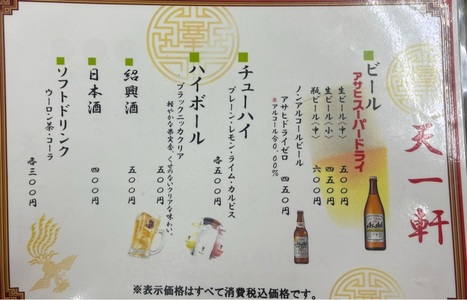 天一軒
ビール
アサヒスーパードライ
生ビール〈中〉 五〇〇円
生ビール〈小〉 四五〇円
瓶ビール〈中〉 六〇〇円
ノンアルコールビール
アサヒドライゼロ 四五〇円
※アルコール分0.00%
チューハイ
プレーン・レモン・ライム・カルピス
各五〇〇円
ハイボール
ブラックニッカクリア 五〇〇円
軽やかな果実香、くせのないクリアな味わい。
紹興酒
五〇〇円
日本酒
四〇〇円
ソフトドリンク
ウーロン茶・コーラ
各三〇〇円
※表示価格はすべて消費税込価格です。